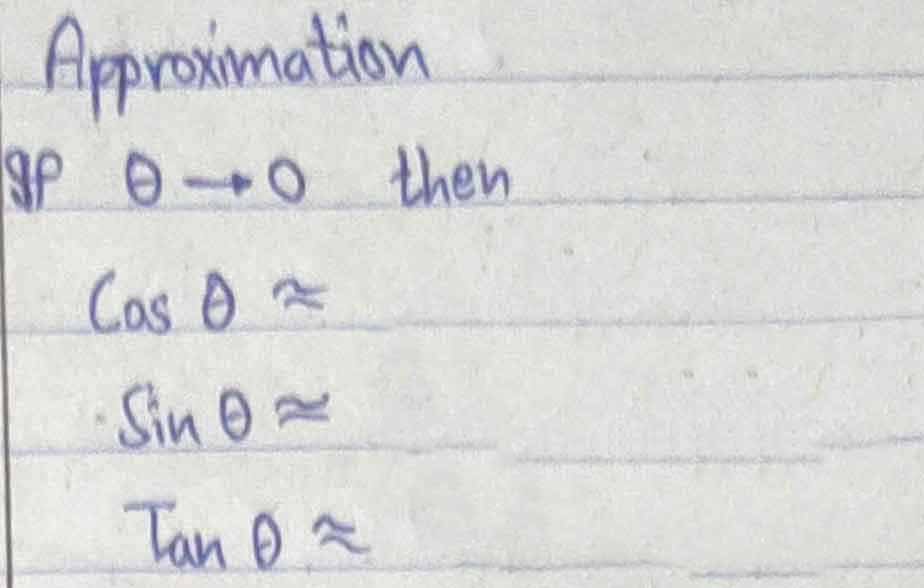 Approximation
If θ → 0 then
Cos θ ≈
Sin θ ≈
Tan θ ≈